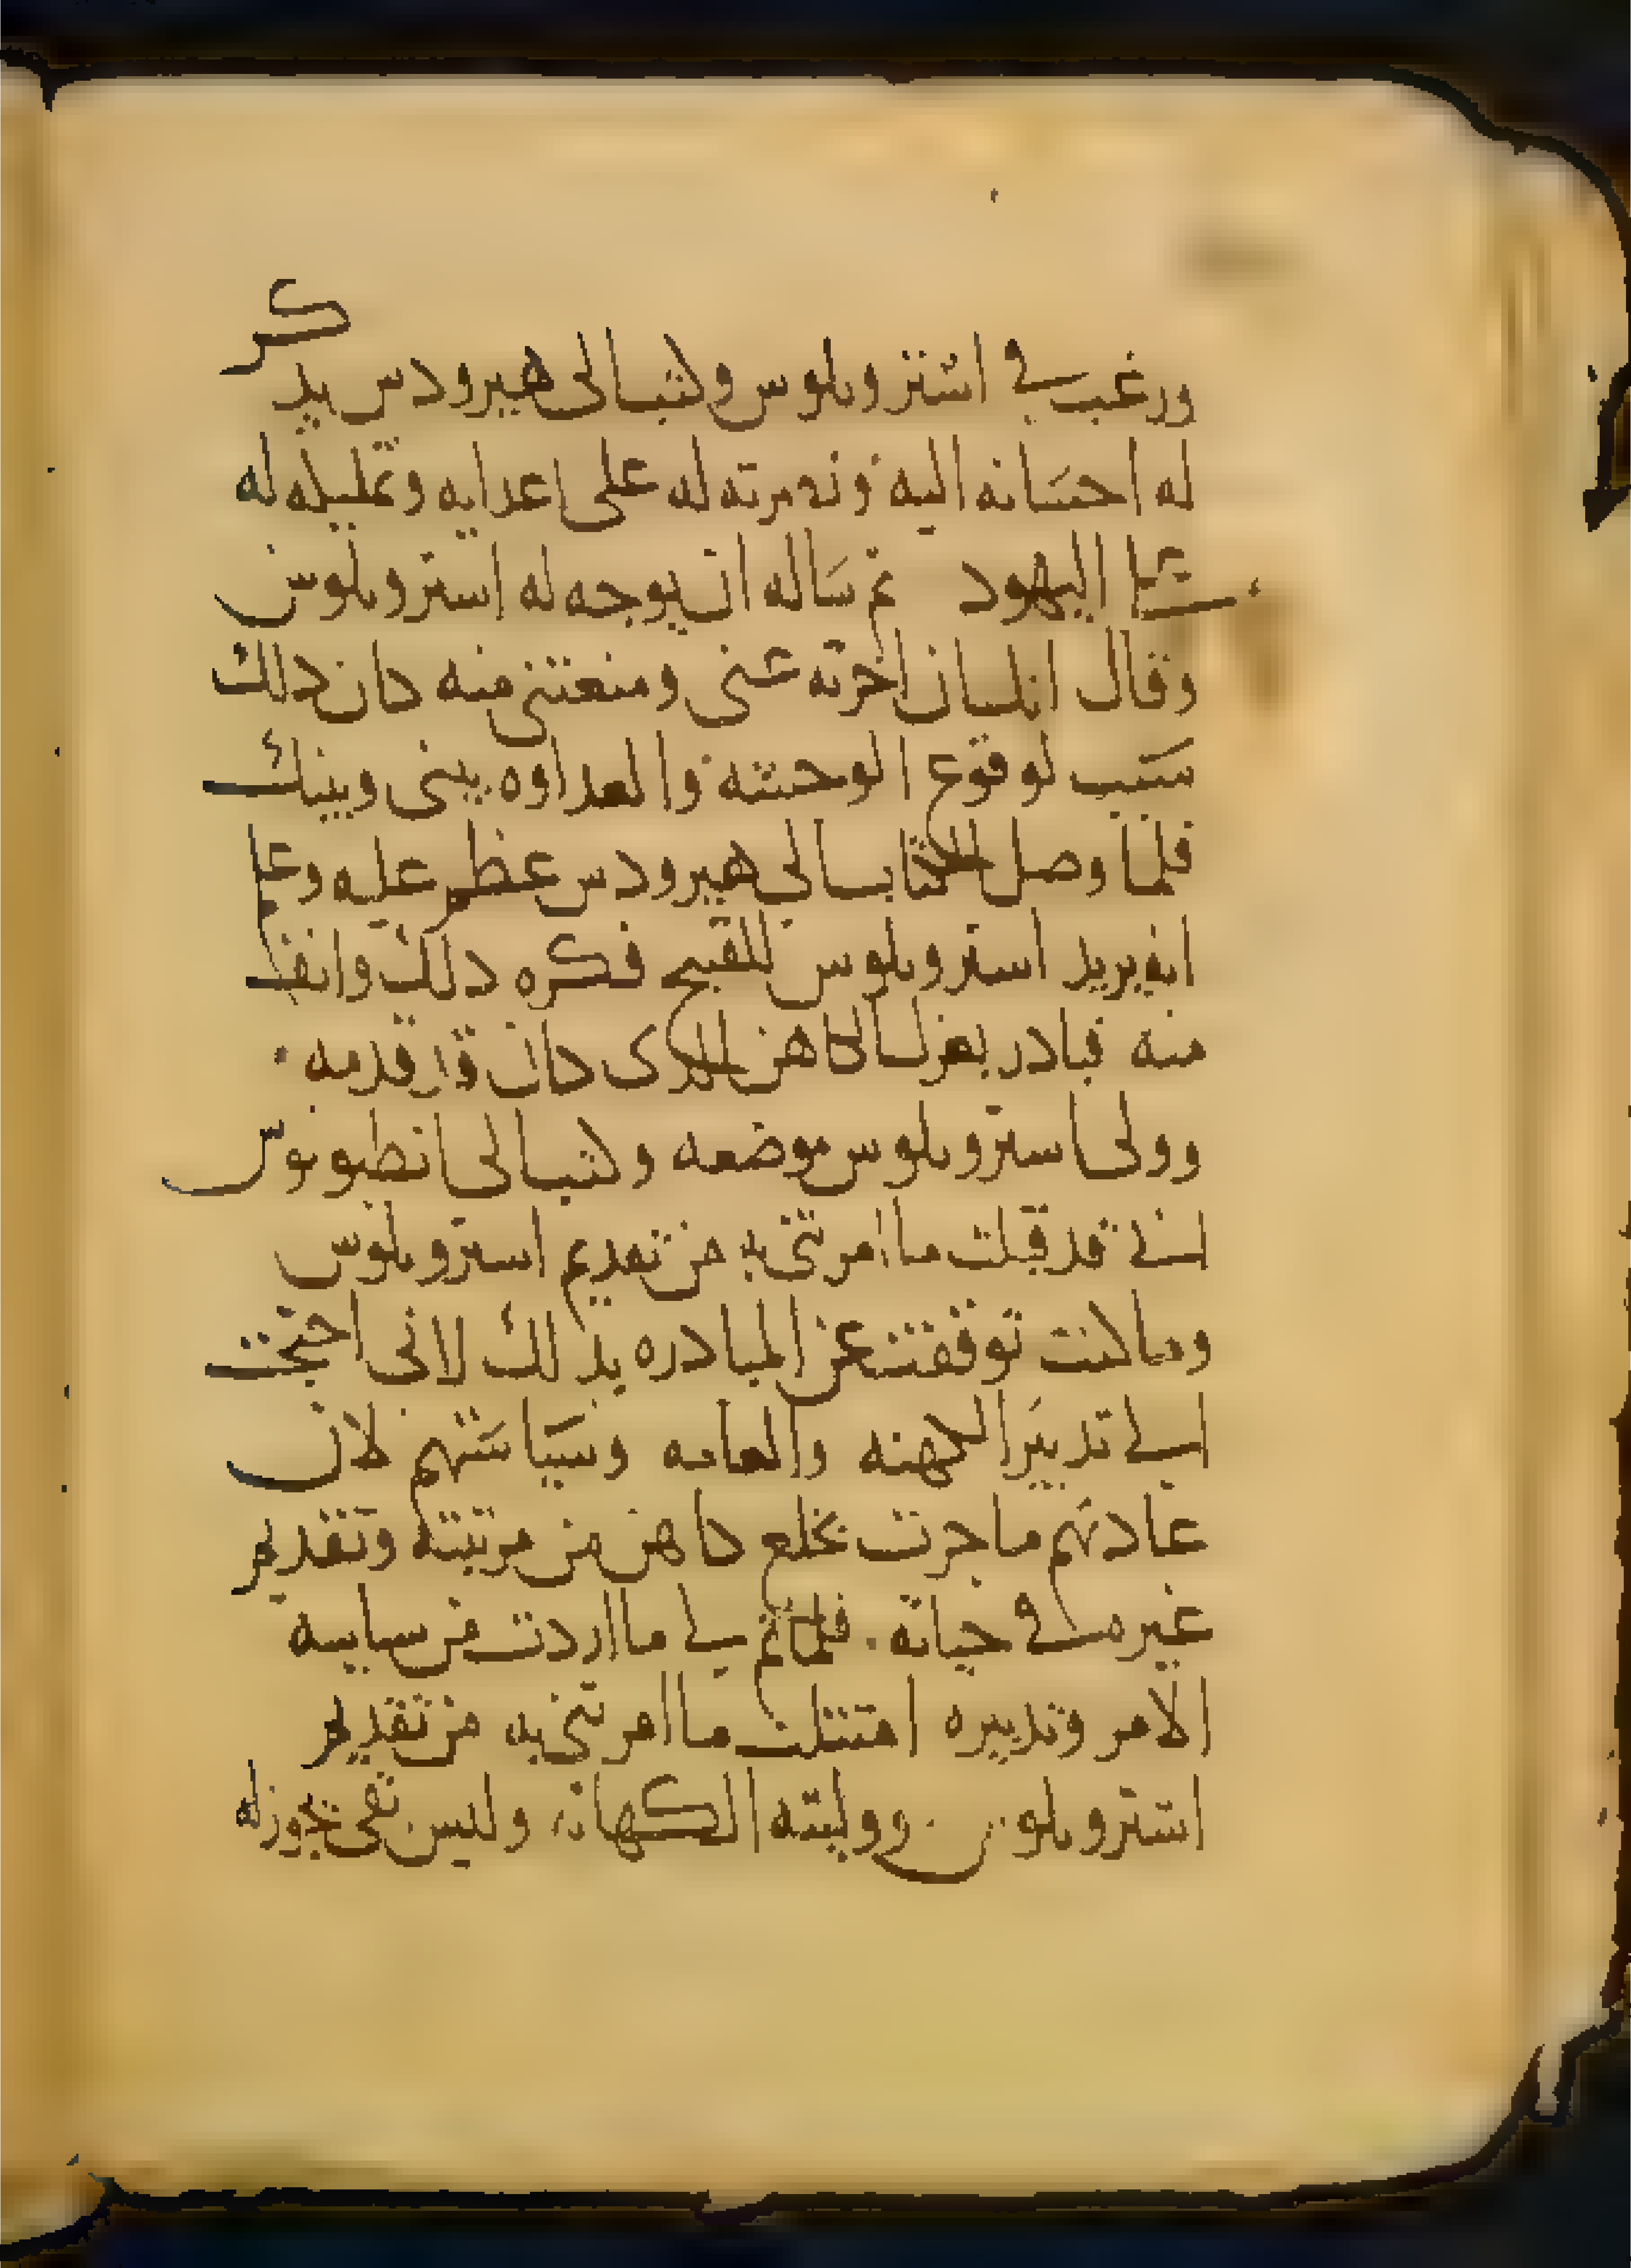 ورغب في استروبلوس وكتب الى هيرودس يذكر
له احسانه اليه ونصرته له على اعدايه وتمليكه له
على اليهود ثم ساله ان يوجه له استروبلوس
وقال انك ان اخرته عنى ومنعتنى منه كان ذلك
سبب لوقوع الوحشه والعداوه بينى وبينك
فلما وصل الكتاب الي هيرودس عظم عليه وعلم
انه يريد استروبلوس للقبيح فكره ذلك وانف
منه فبادر بعزل الكاهن الذى كان قد قدمه
وولى استروبلوس موضعه وكتب الى انطونيوس
انني قد قبلت ما امرتنى به من تقديم استروبلوس
وما كنت توقفت عن المبادره بذلك لانى احتجت
الي تدبير الكهنه والعامه وسياستهم لان
عادتهم ما جرت بخلع كاهن من مرتبته وتقديم
غيره في حياته. فلما تم لي ما اردت من سياسه
الامر وتدبيره امتثلت ما امرتنى به من تقديم
استروبلوس ووليته الكهانه وليس بقى يجوز له